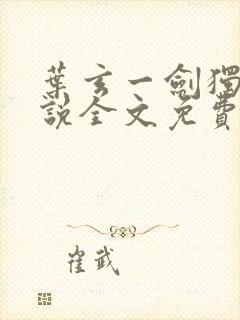 葉玄一劍獨
說全文免費
崔武